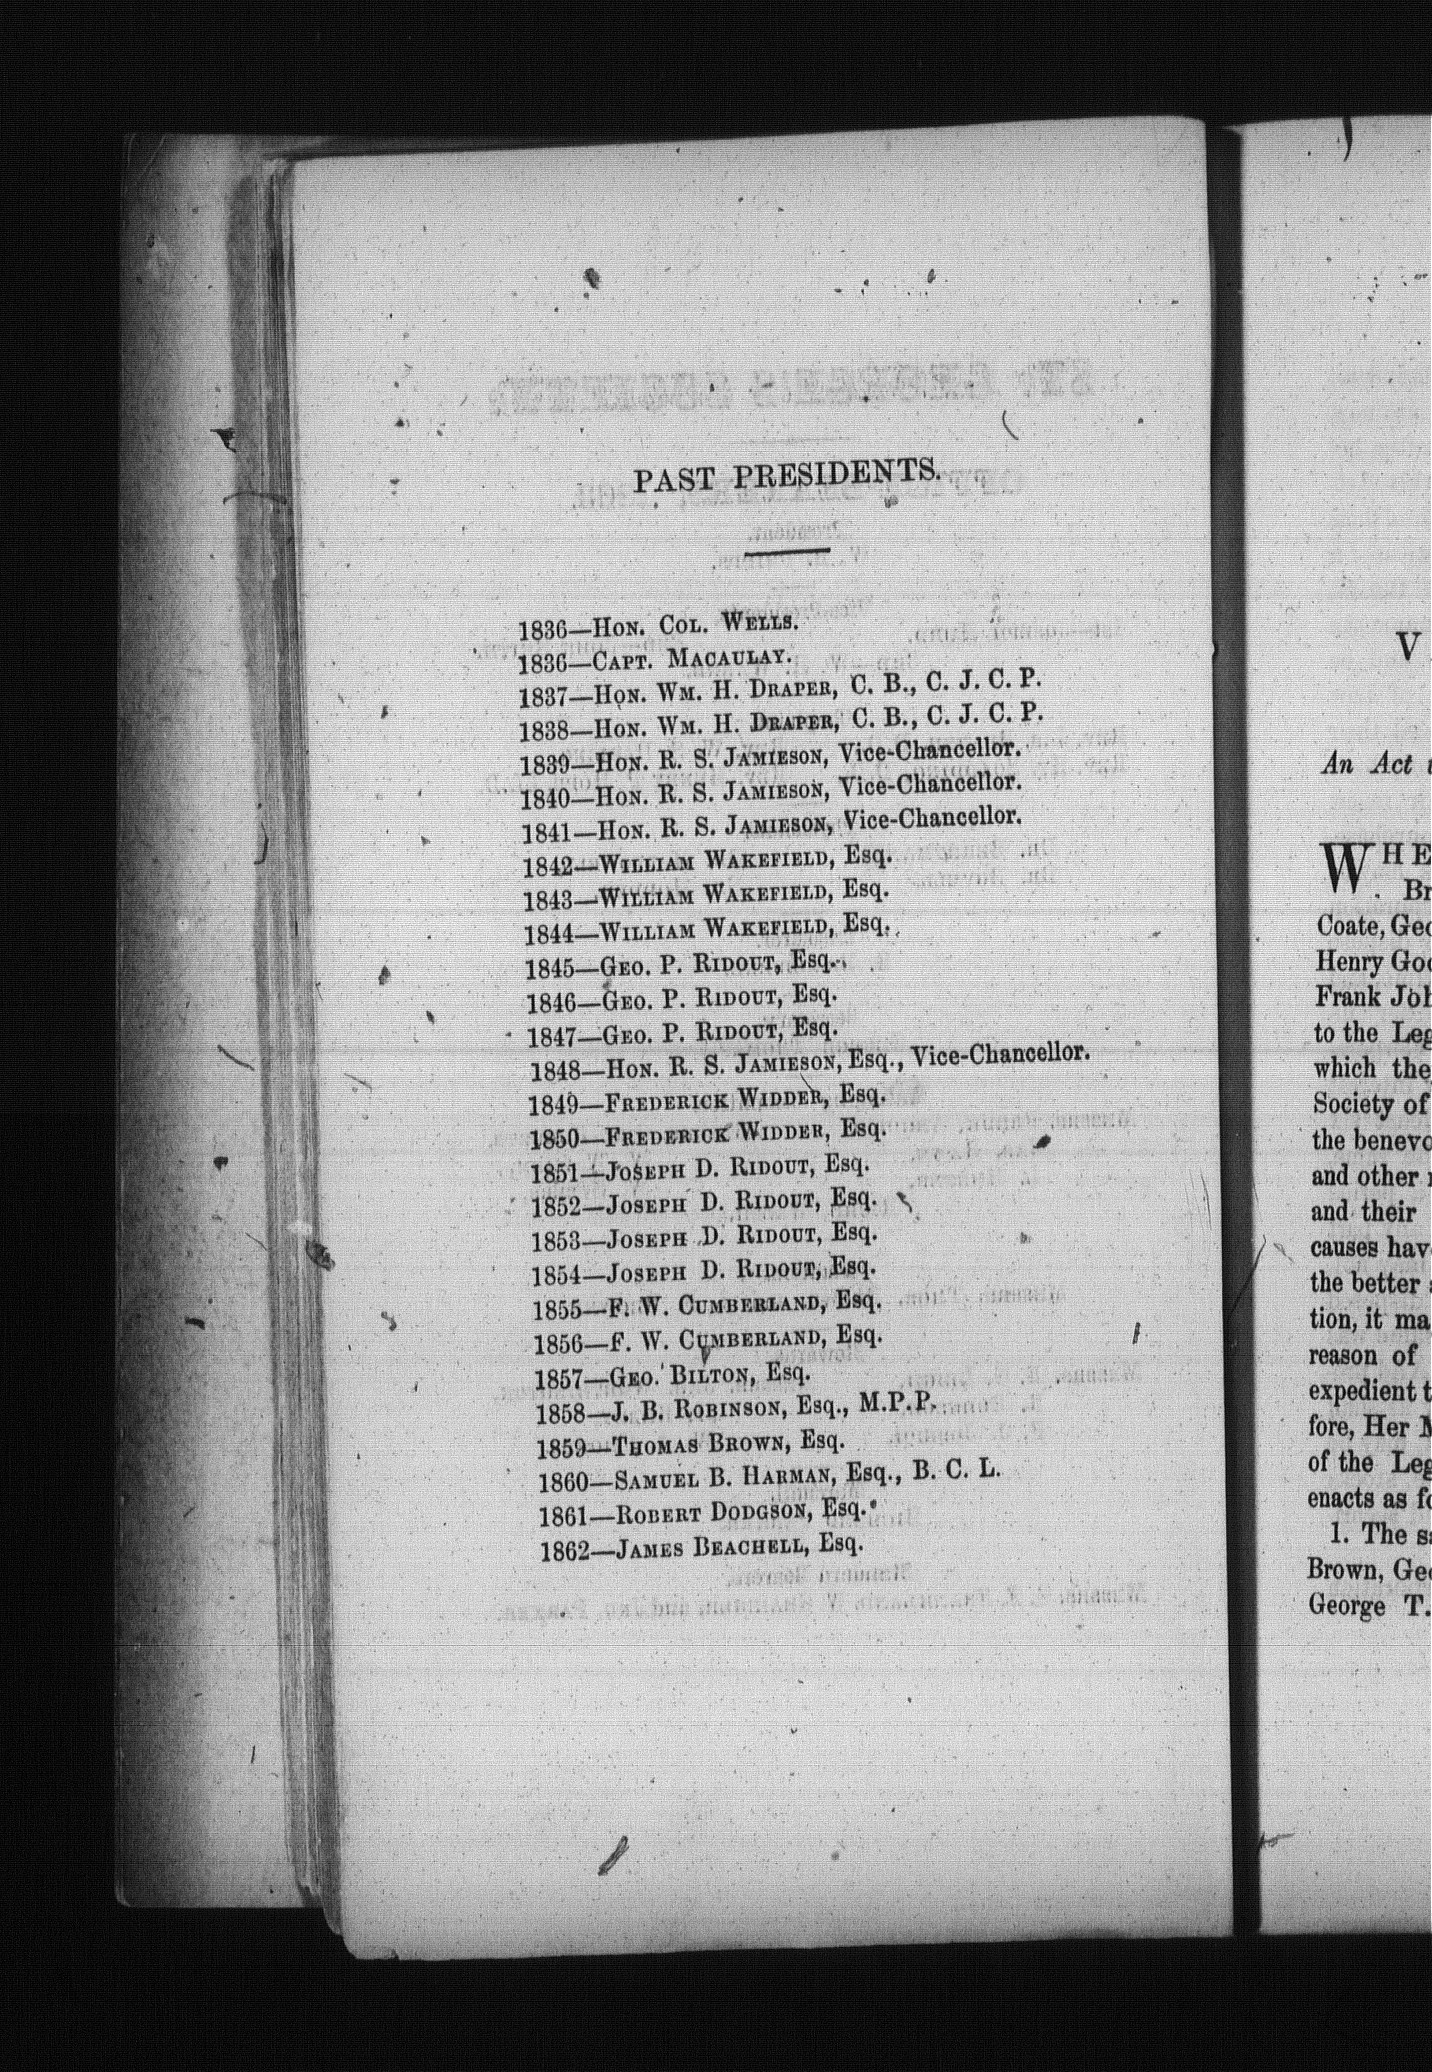 PAST PRESIDENTS.
1836—HON. COL. WELLS.
1836—CAPT. MACAULAY.
1837—HON. WM. H. DRAPER, C. B., C. J. C. P.
1838—HON. WM. H. DRAPER, C. B., C. J. C. P.
1839—HON. R. S. JAMIESON, Vice-Chancellor.
1840—HON. R. S. JAMIESON, Vice-Chancellor.
1841—HON. R. S. JAMIESON, Vice-Chancellor.
1842—WILLIAM WAKEFIELD, Esq.
1843—WILLIAM WAKEFIELD, Esq.
1844—WILLIAM WAKEFIELD, Esq.
1845—GEO. P. RIDOUT, Esq.
1846—GEO. P. RIDOUT, Esq.
1847—GEO. P. RIDOUT, Esq.
1848—HON. R. S. JAMIESON, Esq., Vice-Chancellor.
1849—FREDERICK WIDDER, Esq.
1850—FREDERICK WIDDER, Esq.
1851—JOSEPH D. RIDOUT, Esq.
1852—JOSEPH D. RIDOUT, Esq.
1853—JOSEPH D. RIDOUT, Esq.
1854—JOSEPH D. RIDOUT, Esq.
1855—F. W. CUMBERLAND, Esq.
1856—F. W. CUMBERLAND, Esq.
1857—GEO. BILTON, Esq.
1858—J. B. ROBINSON, Esq., M.P.P.
1859—THOMAS BROWN, Esq.
1860—SAMUEL B. HARMAN, Esq., B. C. L.
1861—ROBERT DODGSON, Esq.
1862—JAMES BEACHELL, Esq.
V
An Act
WHE
Br
Coate, Geo
Henry Goo
Frank Joh
to the Leg
which the
Society of
the benevo
and other
and their
causes hav
the better
tion, it ma
reason of
expedient t
fore, Her M
of the Leg
enacts as fo
1. The sa
Brown, Geo
George T.